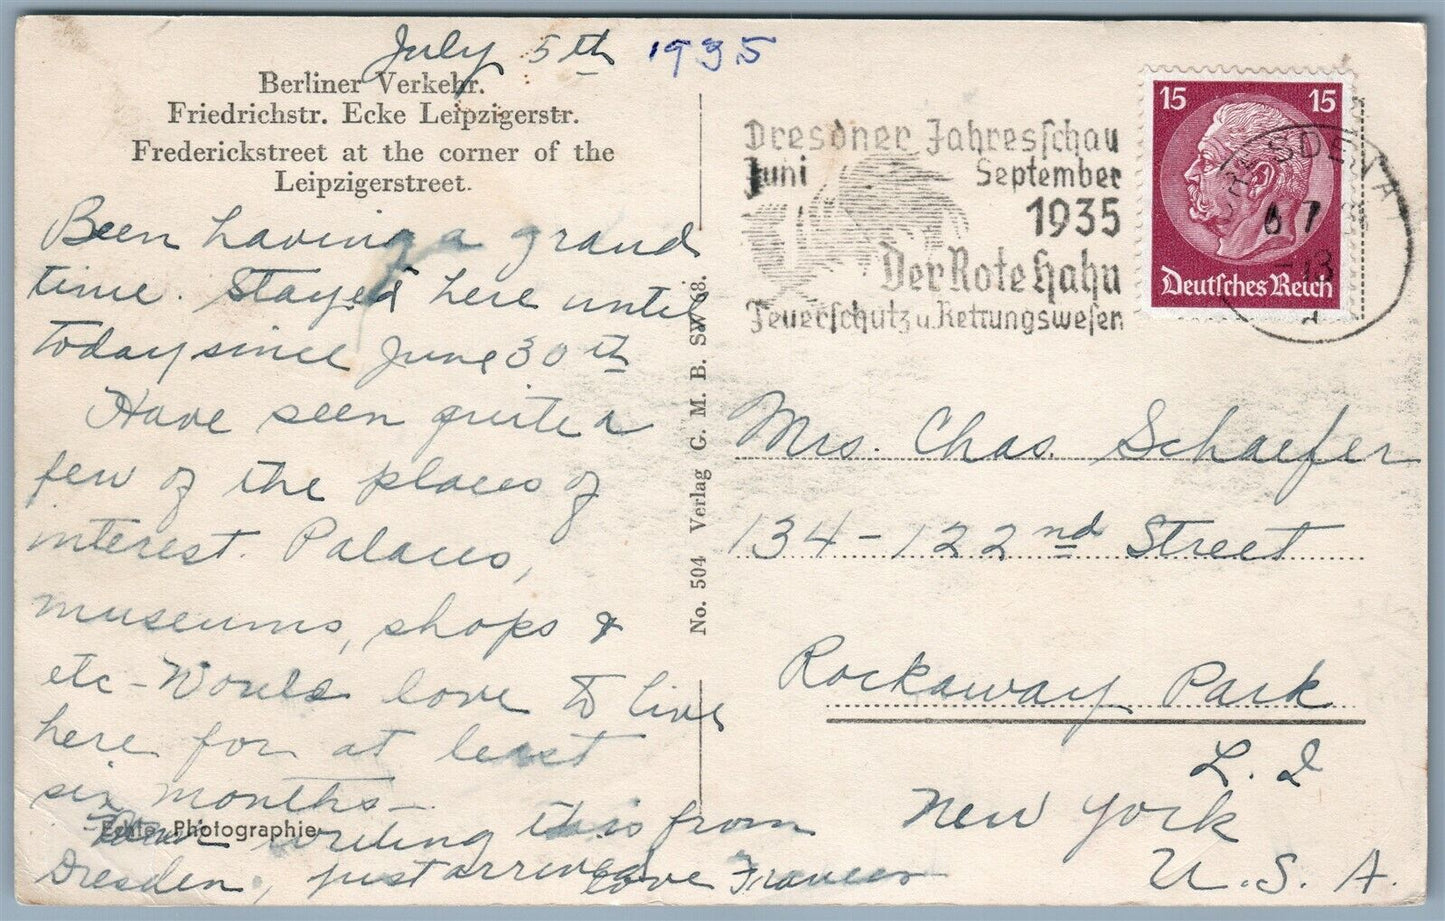 July 5th 1935
Berliner Verkehr.
Friedrichstr. Ecke Leipzigerstr.
Frederickstreet at the corner of the
Leipzigerstreet.
Been having a grand
time. Stayed here until
today since June 30th
Have seen quite a
few of the places of
interest. Palaces,
museums, shops &
etc - Would love to live
here for at least
six months -
Echte Photographie
writing this from
Dresden, just arrived
Love Frances
No. 504 Verlag G. M. B. SW 68.
Dresdner Jahresschau
Juni September
1935
Der Rote Hahn
Feuerschutz u. Rettungswesen
15 15
Deutsches Reich
DRESDEN A
6 7
-18
Mrs. Chas. Schaefer
134 - 122nd Street
Rockaway Park
L. I
New York
U. S. A.